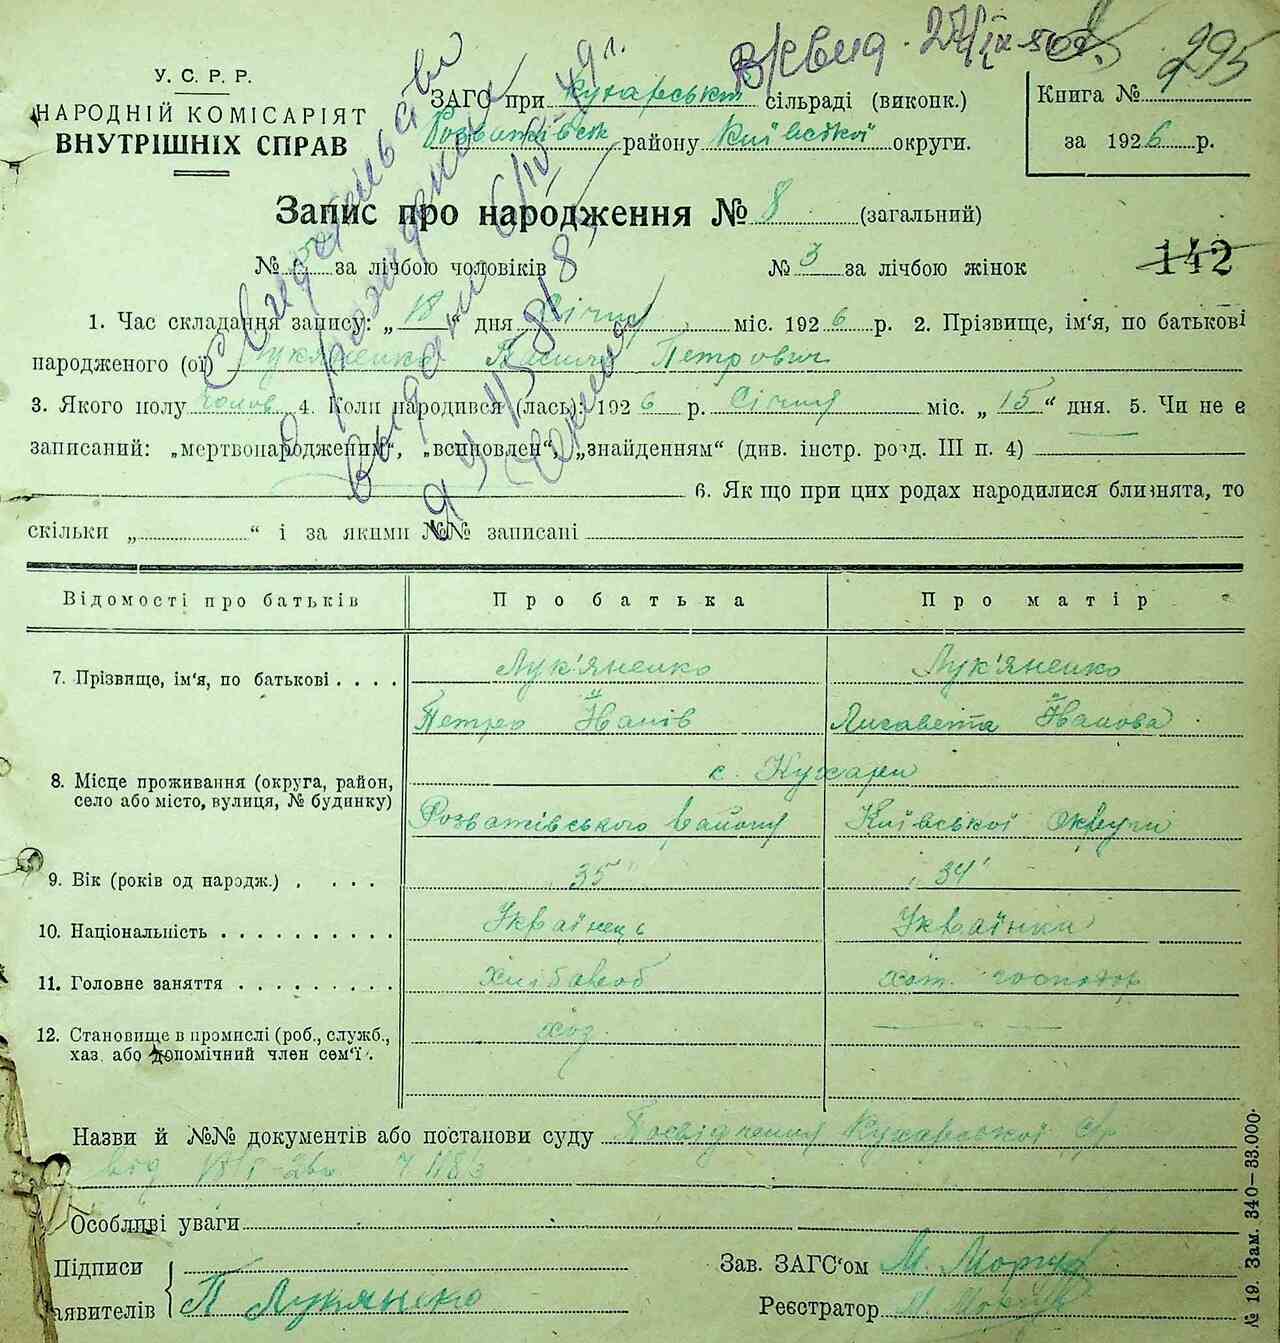 В/свид. 295
У. С. Р. Р.
НАРОДНІЙ КОМІСАРІЯТ
ВНУТРІШНІХ СПРАВ
ЗАГС при Кухарськ сільраді (виконк.)
Розважівськ району Київської округи.
Книга №
за 1926 р.
Запис про народження № 8 (загальний)
№ за лічбою чоловіків № 3 за лічбою жінок 142
1. Час складання запису: „ 18 “ дня Січня міс. 1926 р. 2. Прізвище, ім'я, по батькові
народженого (ої) Лукяненко Петрович
3. Якого полу чолов 4. Коли народився (лась): 1926 р. Січня міс. „ 15 “ дня. 5. Чи не є
записаний: „мертвонародженим“, „всиновлен“, „знайденням“ (див. інстр. розд. III п. 4)
6. Як що при цих родах народилися близнята, то
скільки „ “ і за якими №№ записані
Свидетельство
о рождении
выдано
Відомості про батьків Про батька Про матір
7. Прізвище, ім'я, по батькові . . . . Лук'яненко Лук'яненко
Петро Іванів Лисавета Іванова
8. Місце проживання (округа, район,
село або місто, вулиця, № будинку)
с. Кухари
Розважівського району Київської округи
9. Вік (років од народж.) . . . . . 35 34
10. Національність . . . . . . . . . . Українець Українка
11. Головне заняття . . . . . . . . . хлібороб хат. господар
12. Становище в промислі (роб., служб.,
хаз. або допомічний член сем'ї . хоз.
Назви й №№ документів або постанови суду Посвідчення Кухарської с/р
від
Особливі уваги
Підписи
заявителів П Лукяненко
Зав. ЗАГС'ом М.
Реєстратор М.
№ 19. Зам. 340—33.000.